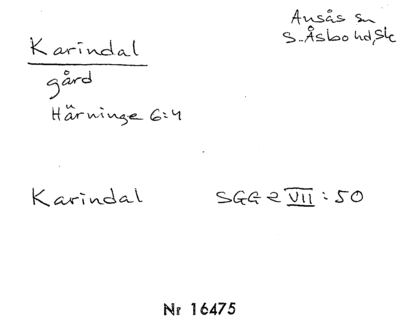 Karindal
gård
Härninge 6:4
Ausås sn
S. Åsbo hd, Sk
Karindal SGG 2 VII : 50
Nr 16475